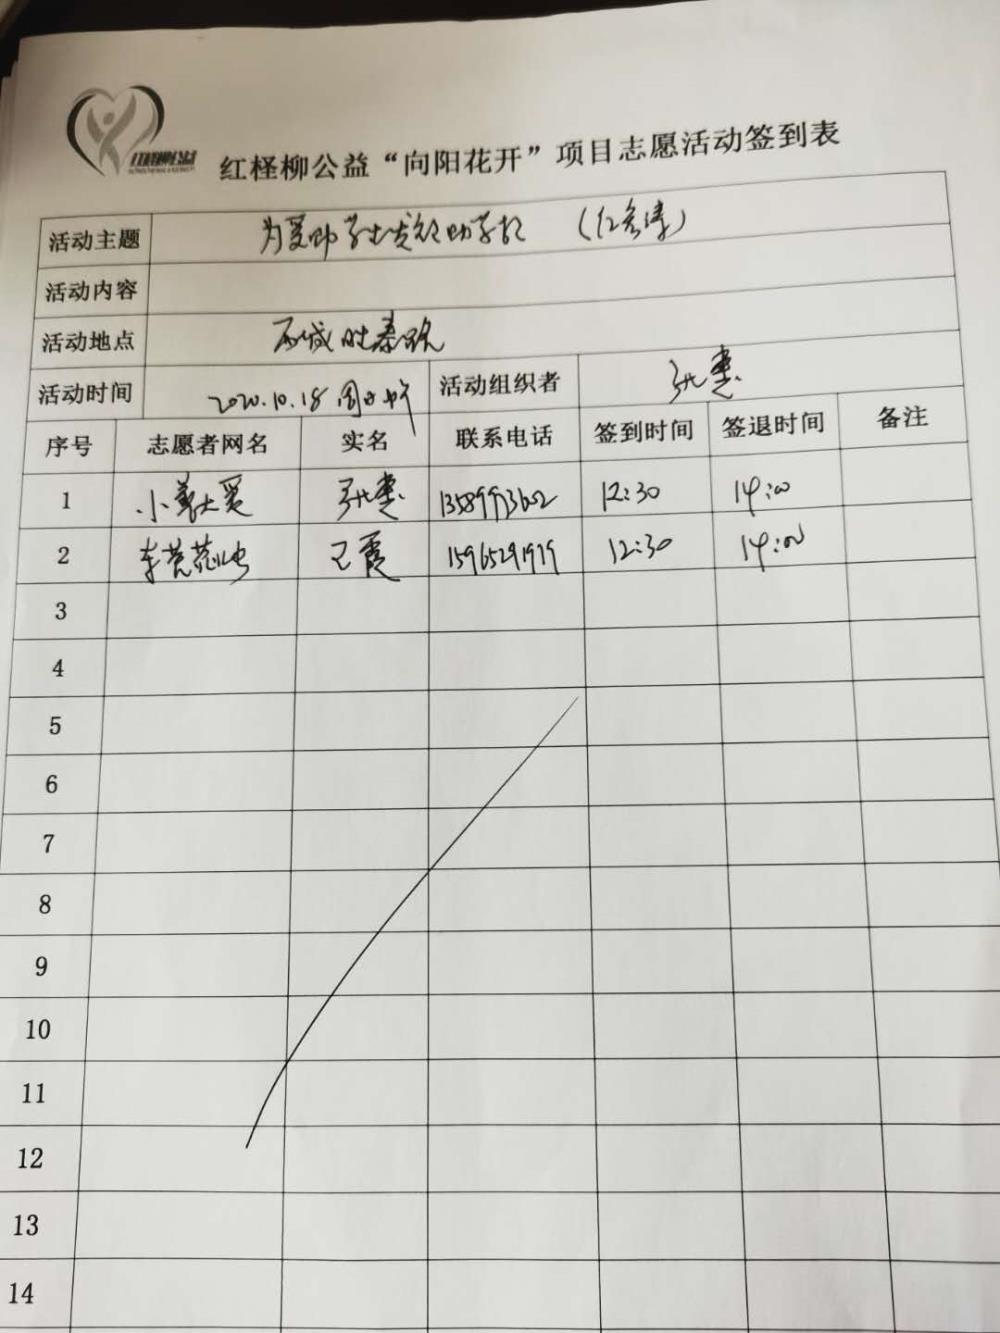 红柽柳公益
红柽柳公益“向阳花开”项目志愿活动签到表
活动主题 为受助学生发放助学
活动内容
活动地点 西城
活动时间 2020.10.18 周日中午 活动组织者 张惠
序号 志愿者网名 实名 联系电话 签到时间 签退时间 备注
1 小善大爱 张惠 12:30 14:00
2 霞 15965291919 12:30 14:00
3
4
5
6
7
8
9
10
11
12
13
14